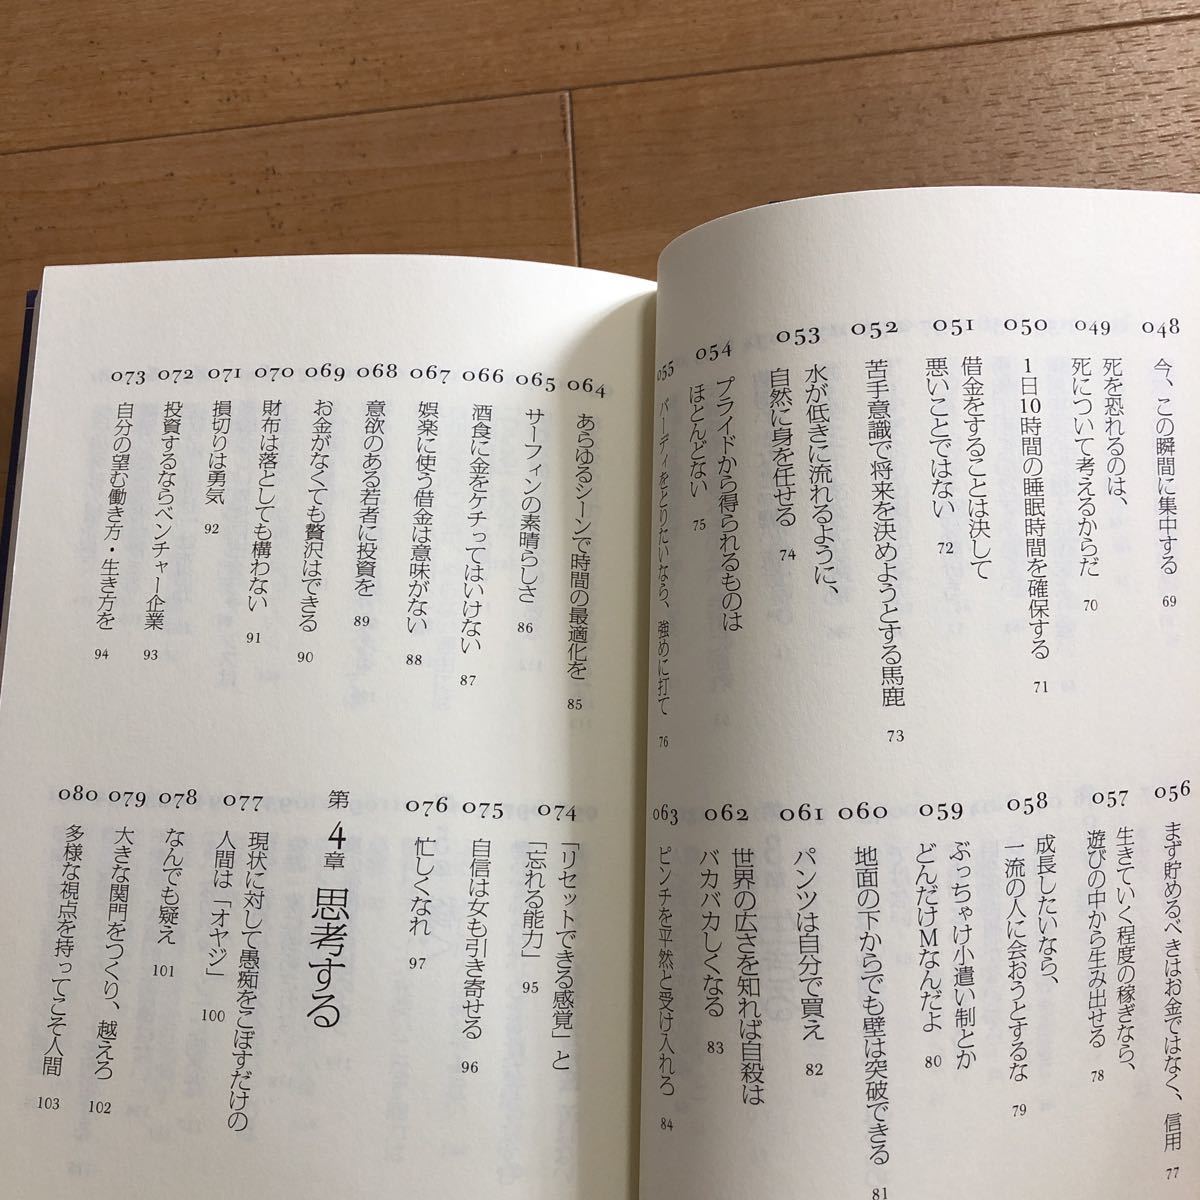 048
今、この瞬間に集中する 69
049
死を恐れるのは、
死について考えるからだ 70
050
1日10時間の睡眠時間を確保する 71
051
借金をすることは決して
悪いことではない 72
052
苦手意識で将来を決めようとする馬鹿 73
053
水が低きに流れるように、
自然に身を任せる 74
054
プライドから得られるものは
ほとんどない 75
055
バーディをとりたいなら、強めに打て 76
056
まず貯めるべきはお金ではなく、信用 77
057
生きていく程度の稼ぎなら、
遊びの中から生み出せる 78
058
成長したいなら、
一流の人に会おうとするな 79
059
ぶっちゃけ小遣い制とか
どんだけMなんだよ 80
060
地面の下からでも壁は突破できる 81
061
パンツは自分で買え 82
062
世界の広さを知れば自殺は
バカバカしくなる 83
063
ピンチを平然と受け入れろ 84
064
あらゆるシーンで時間の最適化を 85
065
サーフィンの素晴らしさ 86
066
酒食に金をケチってはいけない 87
067
娯楽に使う借金は意味がない 88
068
意欲のある若者に投資を 89
069
お金がなくても贅沢はできる 90
070
財布は落としても構わない 91
071
損切りは勇気 92
072
投資するならベンチャー企業 93
073
自分の望む働き方・生き方を 94
074
「リセットできる感覚」と
「忘れる能力」 95
075
自信は女も引き寄せる 96
076
忙しくなれ 97
第4章 思考する
077
現状に対して愚痴をこぼすだけの
人間は「オヤジ」 100
078
なんでも疑え 101
079
大きな関門をつくり、越えろ 102
080
多様な視点を持ってこそ人間 103